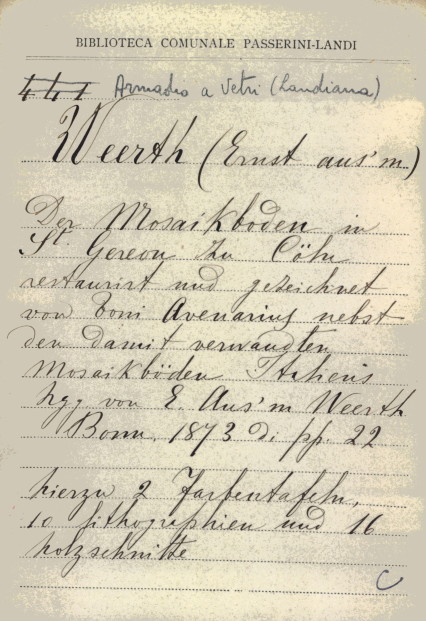 BIBLIOTECA COMUNALE PASSERINI-LANDI
441 Armadio a Vetri (Landiana)
Weerth (Ernst aus'm)
Der Mosaikboden in
St. Gereon zu Cöln
restaurirt und gezeichnet
von Toni Avenarius nebst
den damit verwandten
Mosaikböden Italiens
hgg von E. Aus'm Weerth
Bonn, 1873 di pp. 22
hierzu 2 Farbentafeln,
10 Lithographien und 16
holzschnitte
C